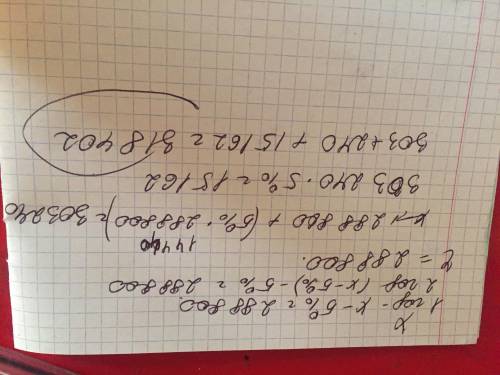 X
1 год - x - 5% = 288 800.
2 год - (x - 5%) - 5% = 288800
= 288 800.
14440
x = 288 800 + (5% · 288 800) = 303240
303 240 · 5% = 15162
303 240 + 15162 = 318402